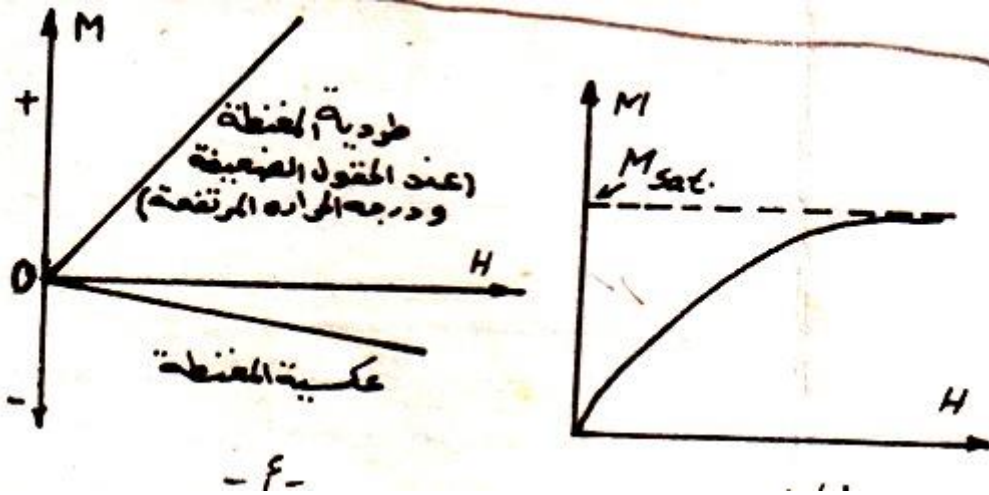 M
+
طردية المغنطة
(عند الحقول الضعيفة
ودرجة الحراره المرتفعة)
O
H
عكسية المغنطة
-
M
M sat.
H